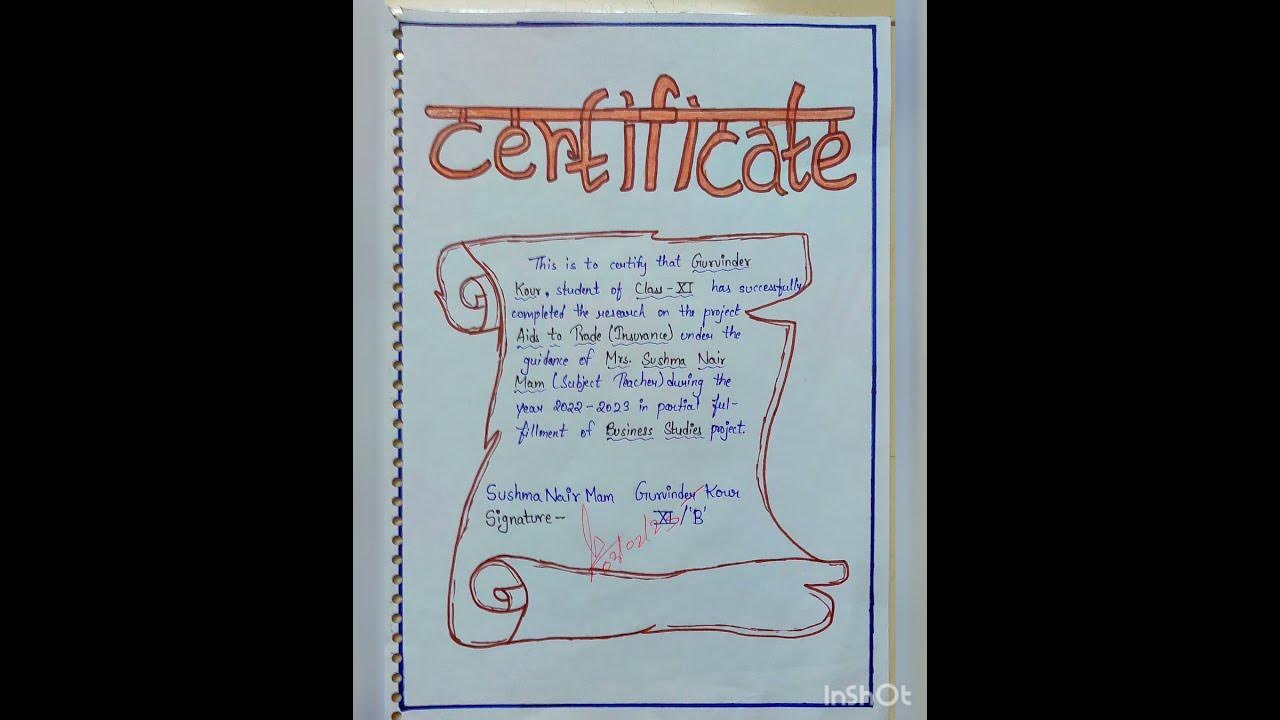 certificate
This is to certify that Gurvinder
Kour, student of Class-XI has successfully
completed the research on the project
Aids to Trade (Insurance) under the
guidance of Mrs. Sushma Nair
Mam (Subject Teacher) during the
year 2022-2023 in partial ful-
fillment of Business Studies project.
Sushma Nair Mam Gurvinder Kour
Signature- XI/'B'
02/02/23
InShOt